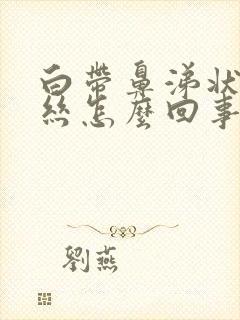 白帶鼻涕狀
絲怎麼回事
劉燕